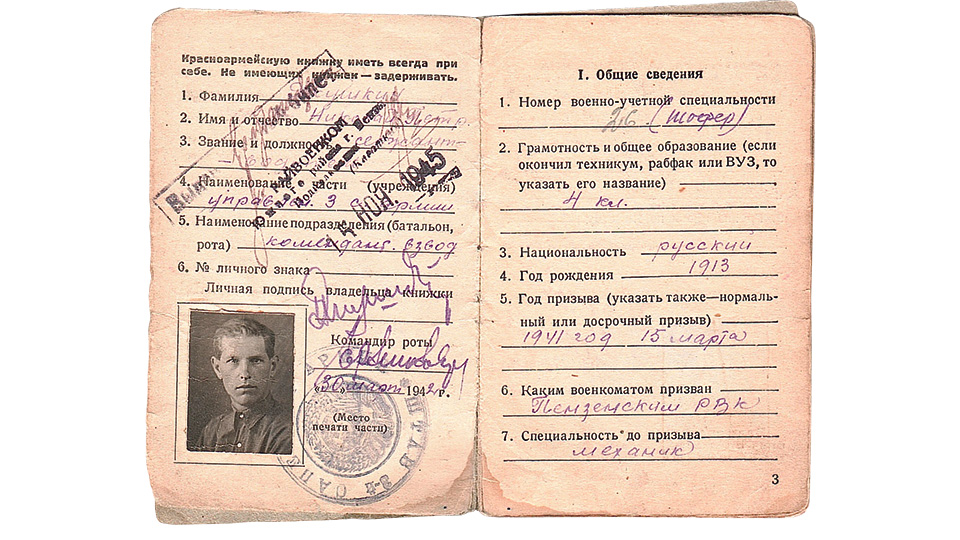 Красноармейскую книжку иметь всегда при
себе. Не имеющих книжек — задерживать.
1. Фамилия
2. Имя и отчество
3. Звание и должность
4. Наименование части (учреждения)
управ. 3 с. армии
5. Наименование подразделения (батальон,
рота) комендант. взвод
6. № личного знака
Личная подпись владельца книжки
Командир роты
"30" март 1942 г.
(Место
печати части)
РАЙВОЕНКОМ
Южного района г. Пенза
НОЯ. 1945
ШТАБ 3-й САП
I. Общие сведения
1. Номер военно-учетной специальности
26 (шофер)
2. Грамотность и общее образование (если
окончил техникум, рабфак или ВУЗ, то
указать его название)
4 кл.
3. Национальность русский
4. Год рождения 1913
5. Год призыва (указать также—нормаль-
ный или досрочный призыв)
1941 год 15 марта
6. Каким военкоматом призван
Пензенским РВК
7. Специальность до призыва
механик
3